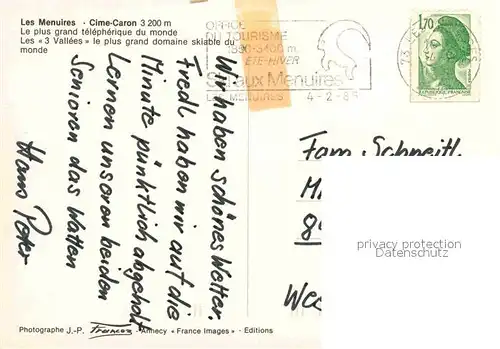 Les Menuires - Cime-Caron 3 200 m
Le plus grand téléphérique du monde
Les « 3 Vallées » le plus grand domaine skiable du
monde
OFFICE
DU TOURISME
1850-3400 m.
ÉTÉ-HIVER
Ski aux Menuires
LES MENUIRES 4-2-85
1,70
REPUBLIQUE FRANÇAISE
Wir haben schönes Wetter.
Fredl haben wir auf die
Minute pünktlich abgeholt
Lernen unseren beiden
Senioren das Watten
Hans Peter
Fam. Schneitl
privacy protection
by
Photographe J.-P. - Annecy « France Images » - Editions